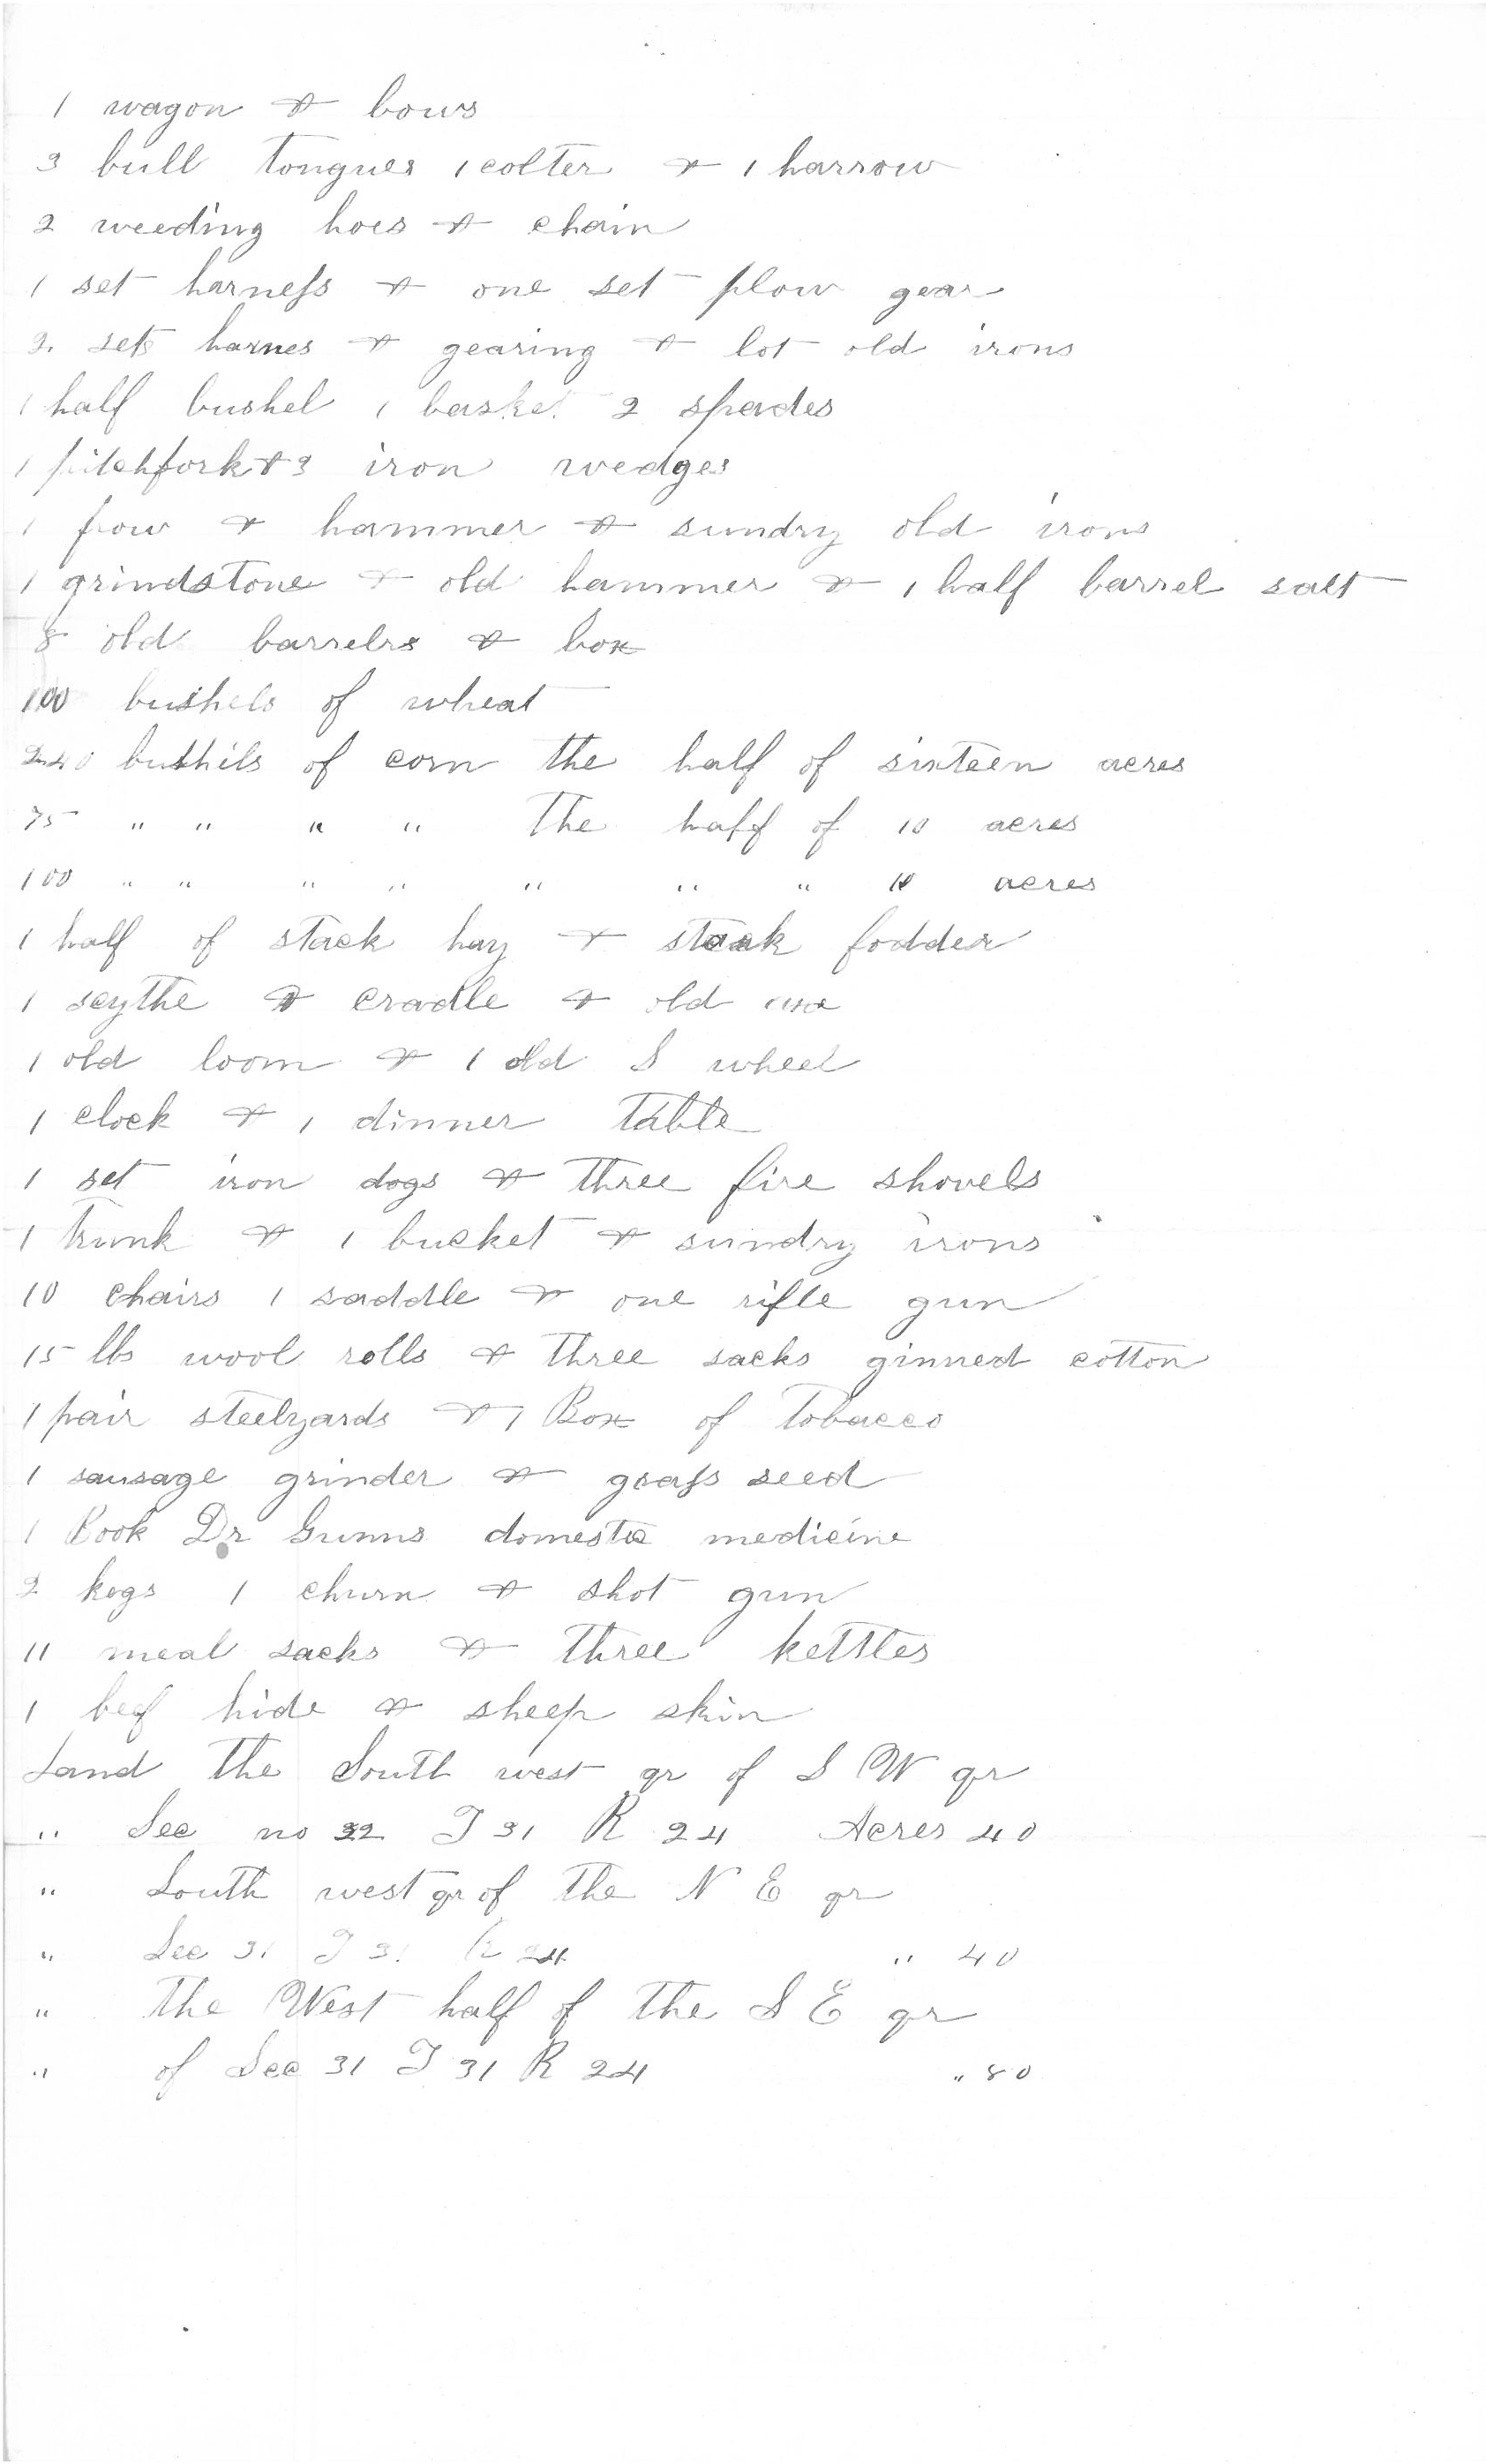 1 wagon & bows
3 bull tongues 1 colter & 1 harrow
2 weeding hoes & chain
1 set harneſs & one set plow gear
2 sets harnes & gearing & lot old irons
1 half bushel 1 basket 2 spades
1 pitchfork & 3 iron wedges
1 frow & hammer & sundry old irons
1 grindstone & old hammer & 1 half barrel salt
8 old barrels & box
100 bushels of wheat
240 bushils of corn the half of sixteen acres
75 " " " " The half of 10 acres
100 " " " " " " " 10 acres
1 half of stack hay & stack fodder
1 scythe & cradle & old axe
1 old loom & 1 old S wheel
1 clock & 1 dinner Table
1 set iron dogs & three fire shovels
1 Trunk & 1 bucket & sundry irons
10 chairs 1 saddle & one rifle gun
15 lbs wool rolls & three sacks ginned cotton
1 pair steelyards & 1 Box of Tobacco
1 sausage grinder & graſs seed
1 Book Dr Gunns domestic medicine
2 kegs 1 churn & shot gun
11 meal sacks & three kettles
1 beef hide & sheep skin
Land the South west qr of S W qr
" Sec no 32 T 31 R 24 Acres 40
" South west qr of the N E qr
" Sec 31 T 31 R 24 " 40
" The West half of the S E qr
" of Sec 31 T 31 R 24 " 80